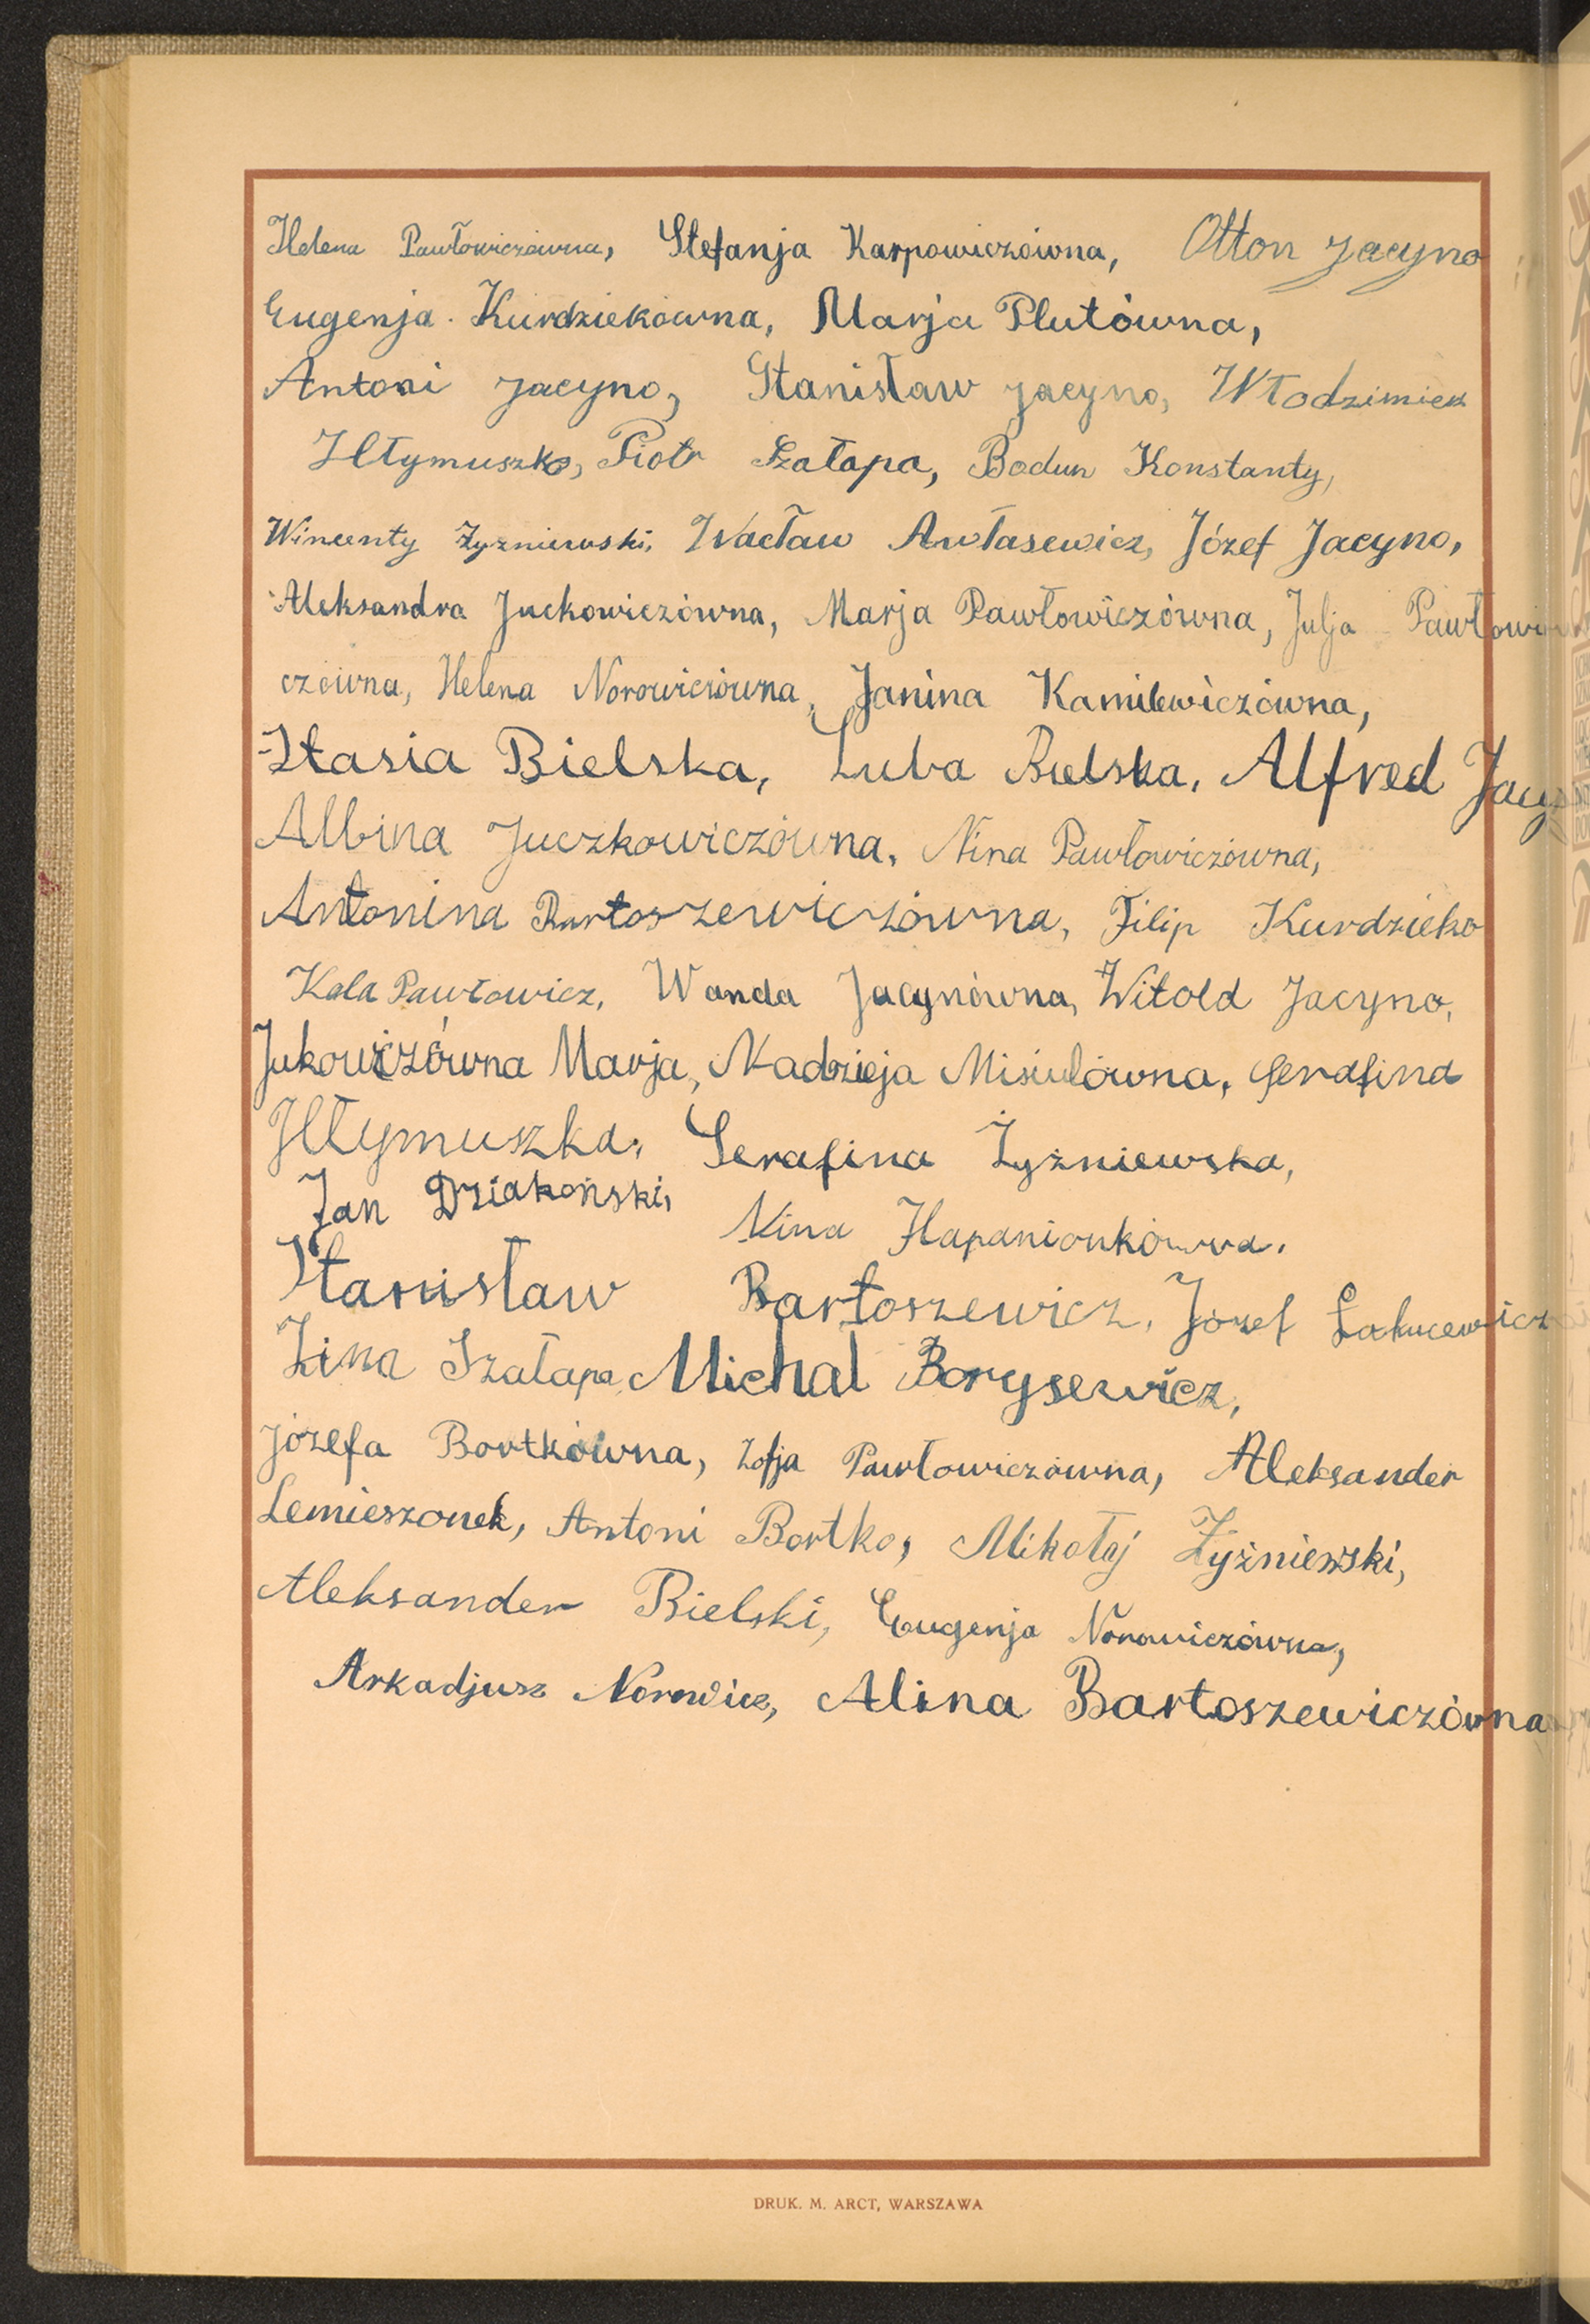 Helena Pawłowiczówna, Stefanja Karpowiczówna, Otton Jacyno
Eugenja Kurdziekówna, Marja Plutówna,
Antoni Jacyno, Stanisław Jacyno, Włodzimierz
Iłtymuszko, Piotr Szałapa, Bodun Konstanty,
Wincenty Żyzniewski, Wacław Awłasewicz, Józef Jacyno,
Aleksandra Juckowiczówna, Marja Pawłowiczówna, Julja Pawłowi
czówna, Helena Norowiczówna, Janina Kamilewiczówna,
Stasia Bielska, Luba Bielska, Alfred
Albina Juczkowiczówna, Nina Pawłowiczówna,
Antonina Bartoszewiczówna, Filip Kurdzieko
Kola Pawłowicz, Wanda Jacynówna, Witold Jacyno,
Jukowiczówna Marja, Nadzieja Misiulówna, Serafina
Serafina Żyżniewska,
Jan Dziakoński,
Nina Hapanionkówna.
Stanisław Bartoszewicz, Józef
Zina Szałapa, Michal Borysewicz,
Józefa Bortkówna, Zofja Pawłowiczówna, Aleksander
Lemieszonek, Antoni Bortko, Mikołaj Żyżniewski,
Aleksander Bielski, Eugenja Norowiczówna,
Arkadjusz Norowicz, Alina Bartoszewiczówna
DRUK. M. ARCT, WARSZAWA